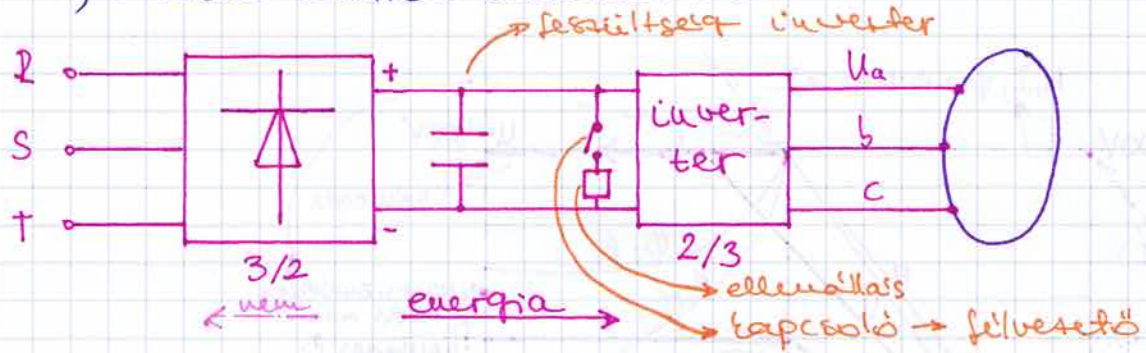 feszültség inverter
R
+
Ua
S
inver-
ter
b
T
-
c
3/2
2/3
nem
energia
ellenállás
kapcsoló → félvezető